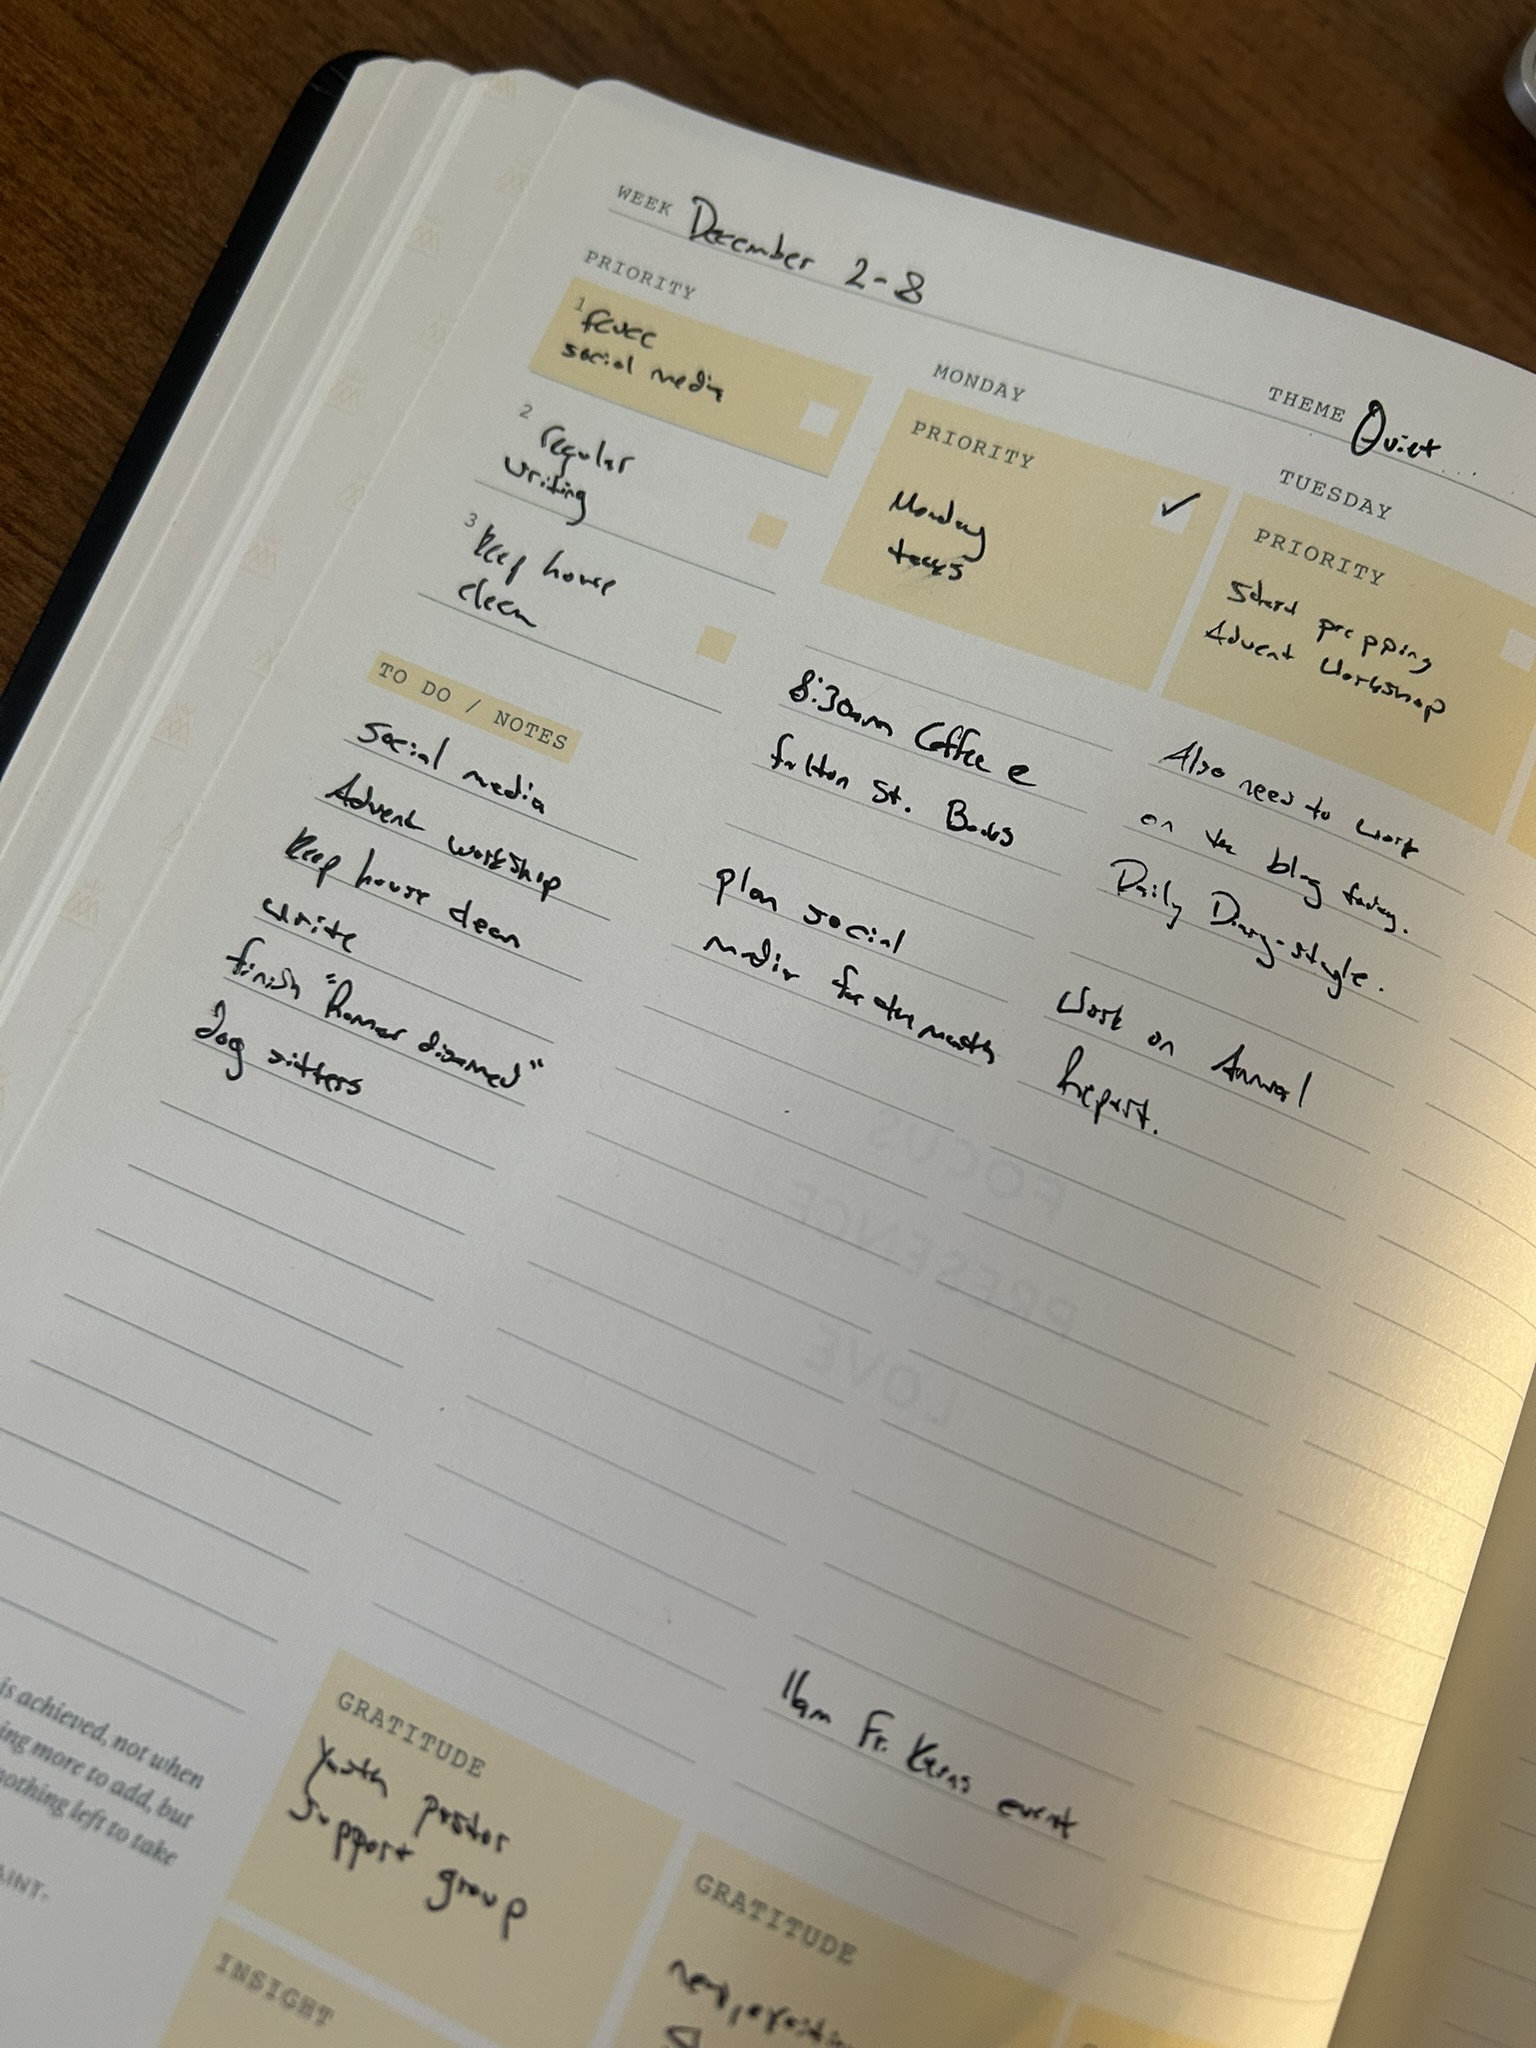 WEEK December 2-8
THEME Quiet
PRIORITY
1 fence
social media
2 regular
writing
3 keep house
clean
TO DO / NOTES
social media
Advent workshop
keep house clean
write
finish "Romar disarmed"
dog sitters
MONDAY
PRIORITY
Monday
tasks
8:30am Coffee @
Fulton St. Books
plan social
media for the month
TUESDAY
PRIORITY
Start prepping
Advent Workshop
Also need to work
on the blog today.
Daily Diary-style.
Work on Annual
Report.
11am Fr. Kerns event
FOCUS
PRESENCE
LOVE
is achieved, not when
ing more to add, but
nothing left to take
AINT-
GRATITUDE
Youth pastor
support group
INSIGHT
GRATITUDE
new, exciting